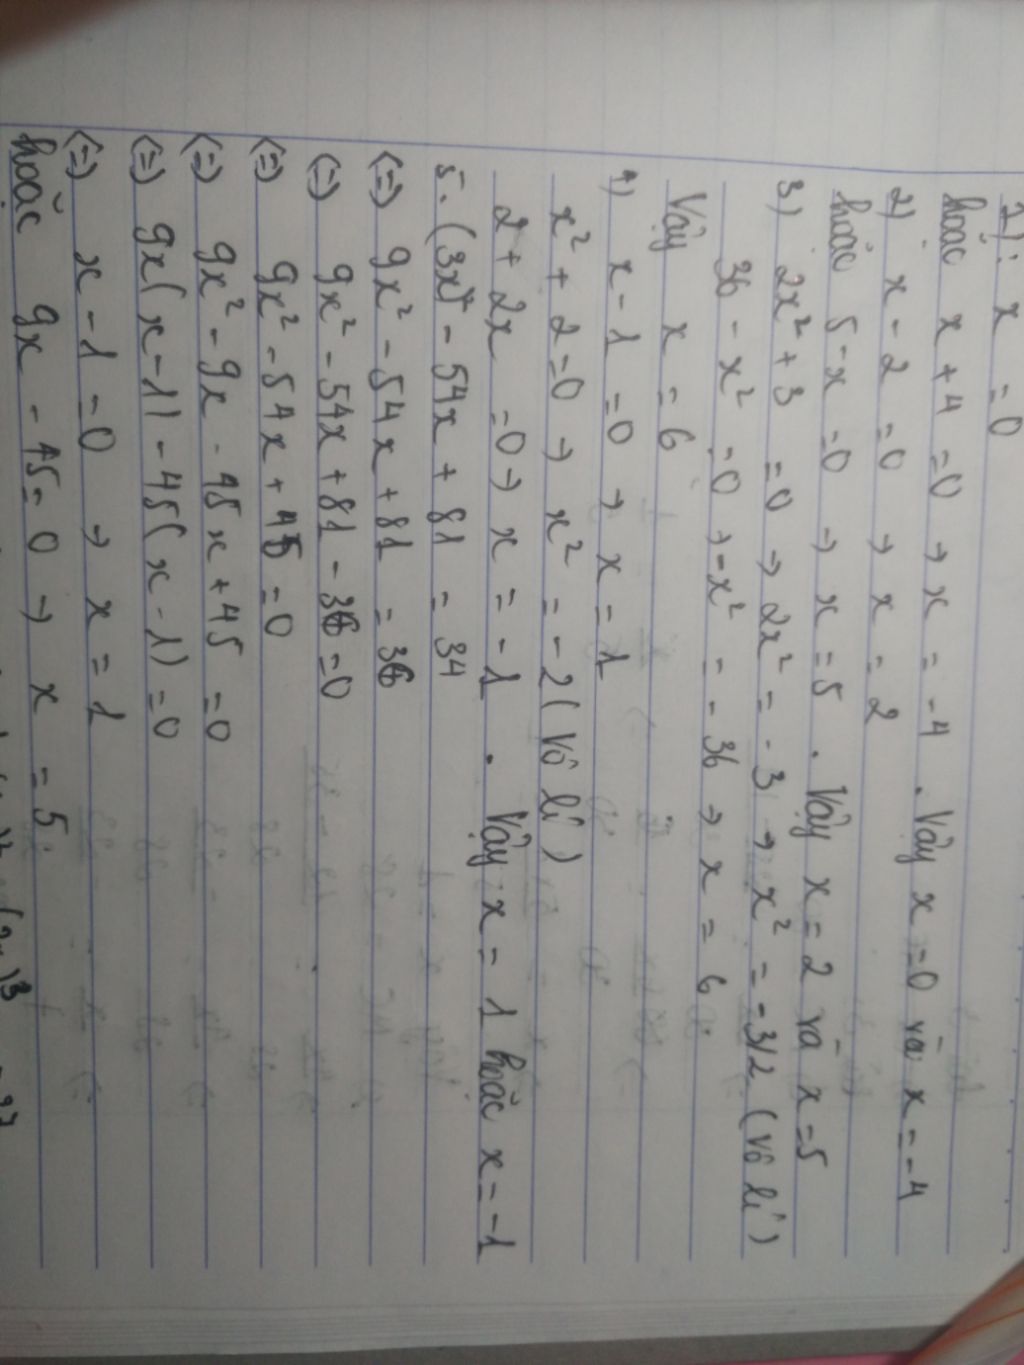 1). x = 0
hoặc x + 4 = 0 → x = -4 . Vậy x = 0 và x = -4
2) x - 2 = 0 → x = 2
hoặc 5 - x = 0 → x = 5 . Vậy x = 2 và x = 5
3) 2x² + 3 = 0 → 2x² = -3 → x² = -3/2 (Vô lí)
36 - x² = 0 → -x² = -36 → x = 6
Vậy x = 6
4) x - 1 = 0 → x = 1
x² + 2 = 0 → x² = -2 (Vô lí)
2 + 2x = 0 → x = -1 . Vậy x = 1 hoặc x = -1
5. (3x)² - 54x + 81 = 34
(=) 9x² - 54x + 81 = 36
(=) 9x² - 54x + 81 - 36 = 0
(=) 9x² - 54x + 45 = 0
(=) 9x² - 9x - 45x + 45 = 0
(=) 9x(x - 1) - 45(x - 1) = 0
(=) x - 1 = 0 → x = 1
hoặc 9x - 45 = 0 → x = 5